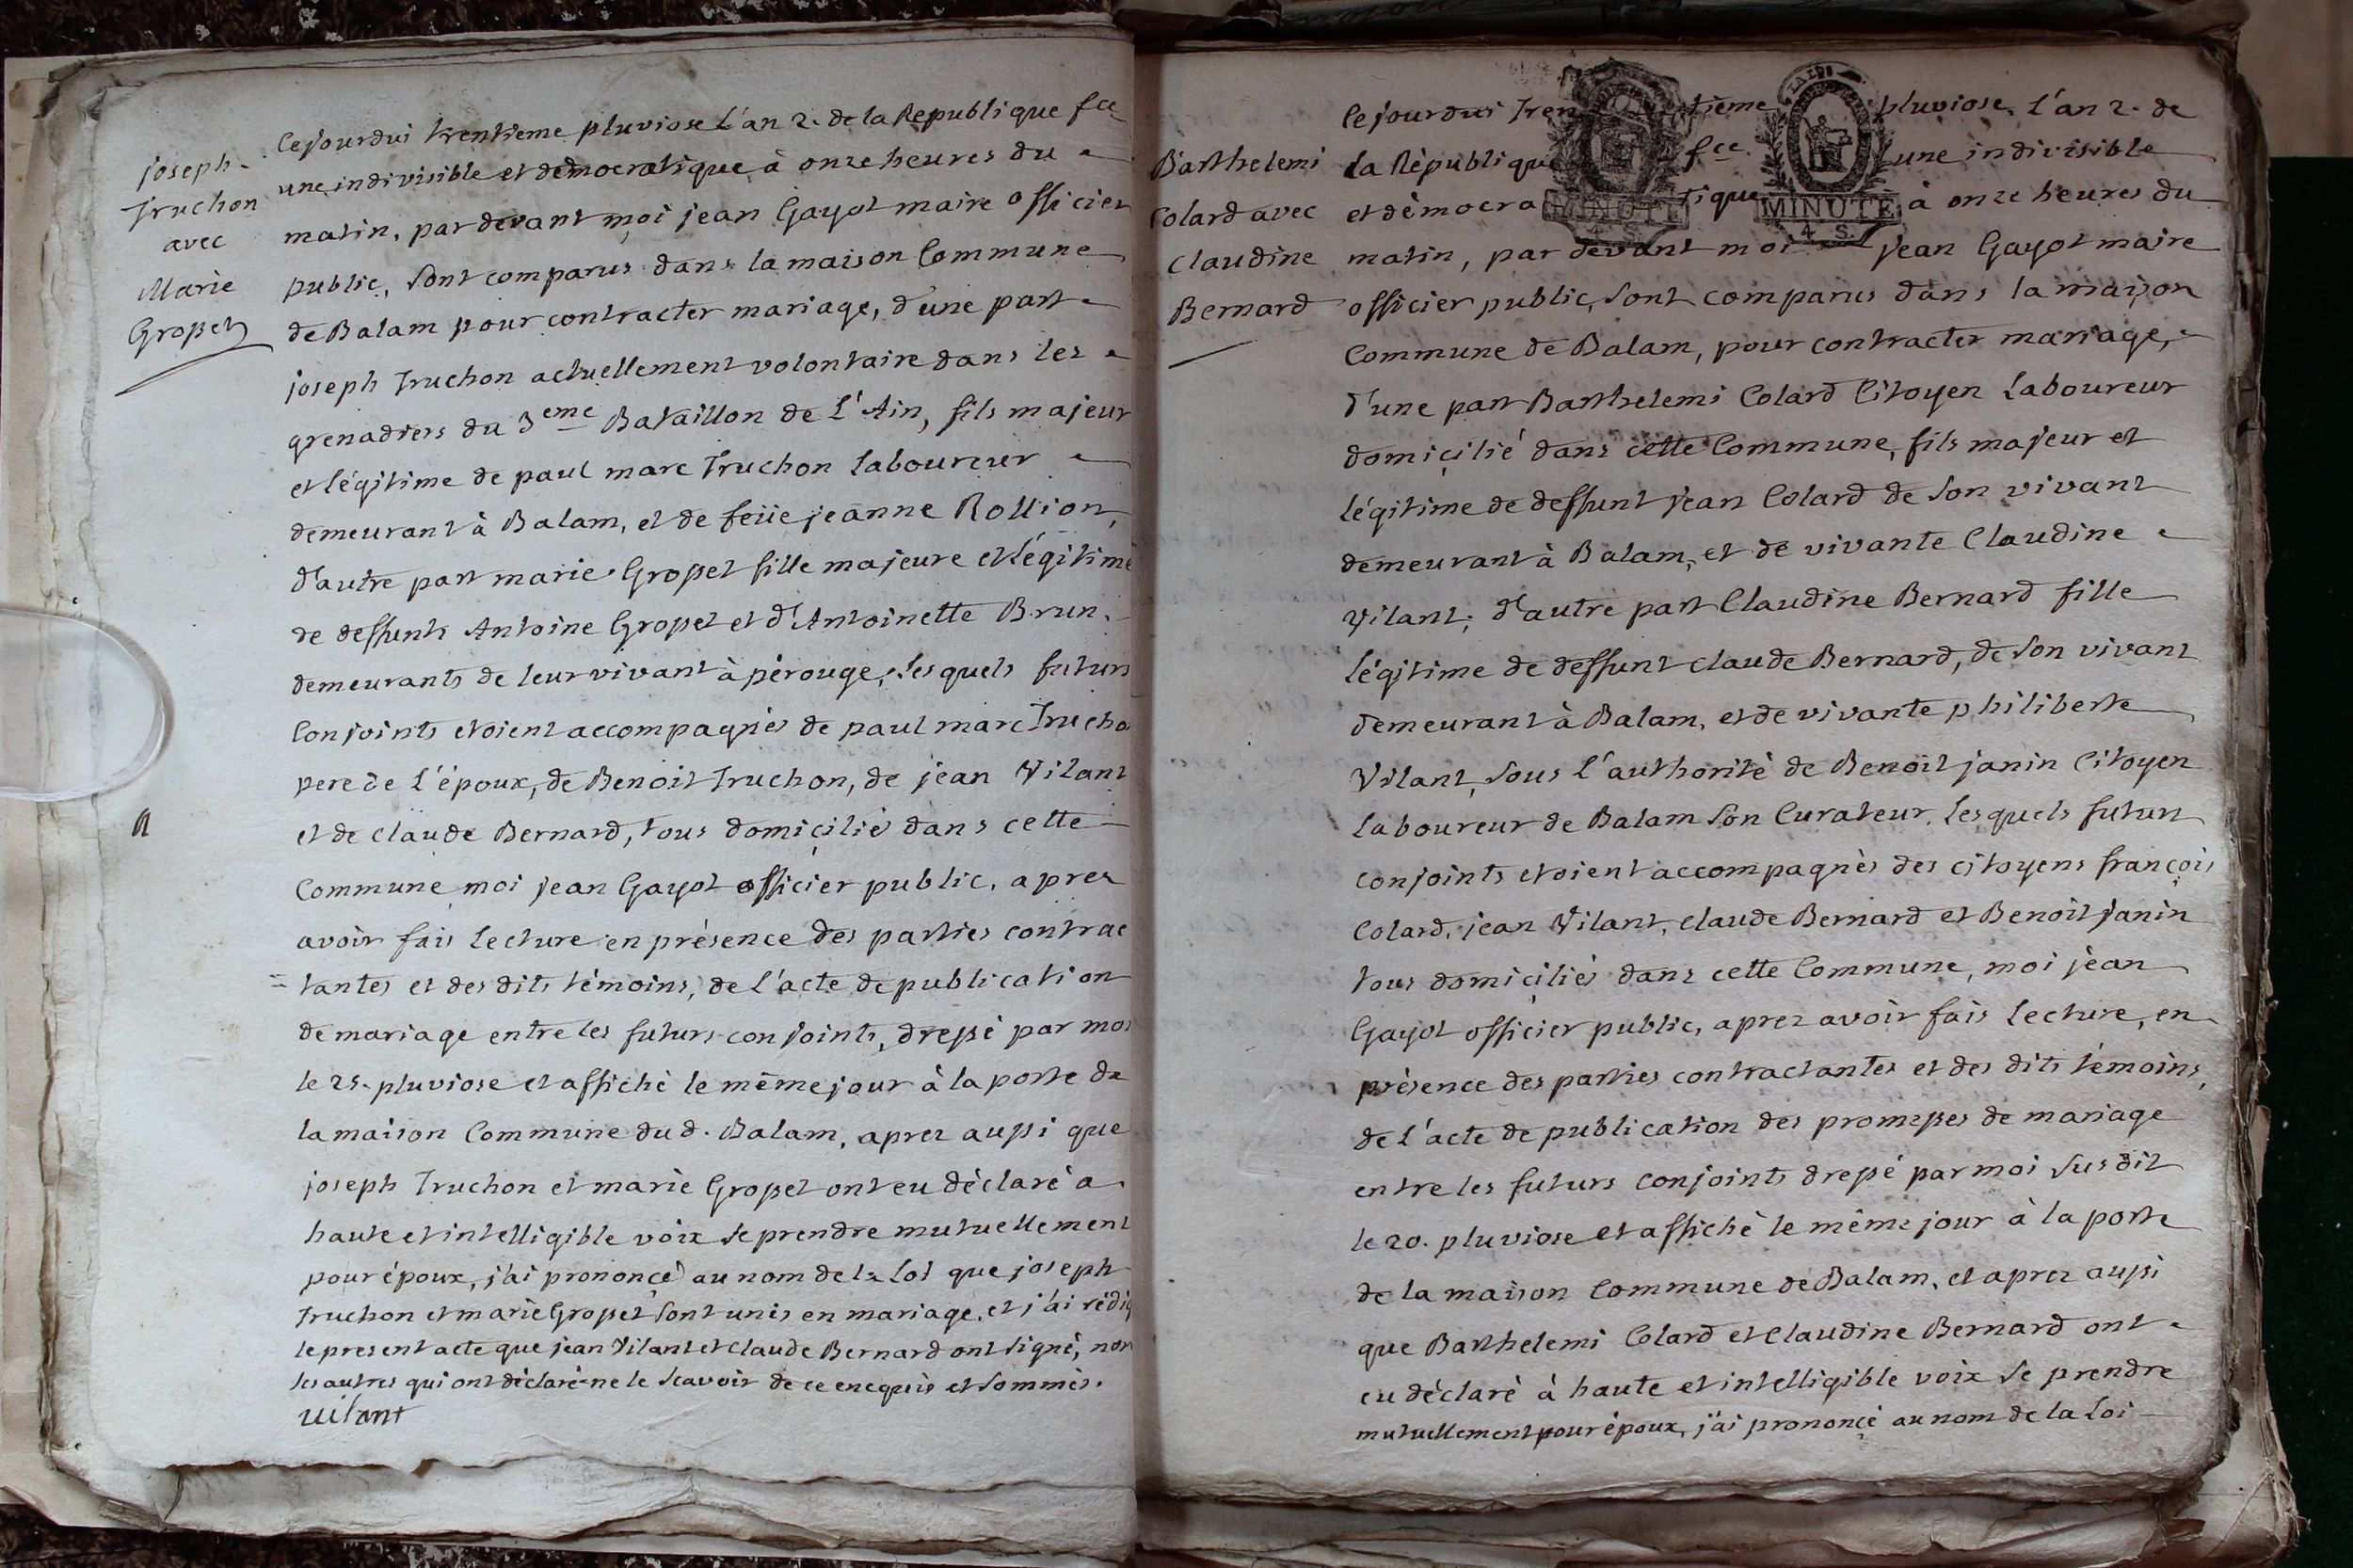 joseph
Truchon
avec
Marie
Grosset
Cejourdui trentieme pluviose L'an 2. de la Republique fce
une, indivisible et démocratique, à onze heures du
matin, par devant moi jean Gayot maire officier
public, sont comparus dans la maison Commune
de Balam pour contracter mariage, d'une part
joseph Truchon actuellement volontaire dans les
grenadiers du 3eme Bataillon de L'Ain, fils majeur
et légitime de paul marc Truchon Laboureur
demeurant à Balam, et de feüe jeanne Rollion,
d'autre part marie Grosset fille majeure et Légitime
de deffunts Antoine Grosset et d'Antoinette Brun,
demeurants de leur vivant à pérouge, les quels futurs
Conjoints etoient accompagnés de paul marc Trucho
pere de L'époux, de Benoit Truchon, de jean Vilant
et de claude Bernard, tous domicilié dans cette
Commune, moi jean Gayot officier public, apres
avoir fais lecture en présence des parties contrac
= tantes et des dits témoins, de L'acte de publication
de mariage entre les futurs conjoints, dressé par moi
le 25. pluviose et affiché le même jour à la porte de
la maison Commune du d. Balam, aprez aussi que
joseph Truchon et marie Grosset ont eu déclaré a
haute et intelligible voix se prendre mutuellement
pour époux, j'ai prononcé au nom de la Loi que joseph
Truchon et marie Grosset sont unis en mariage, et j'ai rédig
le present acte que jean Vilant et claude Bernard ont signé, non
les autres qui ont déclaré ne le scavoir de ce enequis et sommés.
vilant
Barthelemi
Colard avec
Claudine
Bernard
MINUTE
4 S.
MINUTE
4 S.
Cejourdui Tren tième pluviose, L'an 2. de
la République fce une indivisible
et démocra tique à onze heures du
matin, par devant moi jean Gayot maire
officier public, sont comparus dans la maison
Commune de Balam, pour contracter mariage,
d'une part Barthelemi Colard Citoyen Laboureur
domicilié dans cette Commune, fils majeur et
légitime de deffunt jean Colard de son vivant
demeurant à Balam, et de vivante Claudine
Vilant; d'autre part Claudine Bernard fille
légitime de deffunt claude Bernard, de son vivant
demeurant à Balam, et de vivante philiberte
Vilant, sous L'authorité de Benoit janin Citoyen
laboureur de Balam son Curateur, les quels futurs
conjoints etoient accompagnés des citoyens françois
Colard, jean Vilant, claude Bernard et Benoit janin
tous domiciliés dans cette Commune, moi jean
Gayot officier public, aprez avoir fais lecture, en
présence des parties contractantes et des dits témoins,
de L'acte de publication des promesses de mariage
entre les futurs conjoints dressé par moi susdit
le 20. pluviose et affiché le même jour à la porte
de la maison Commune de Balam, et aprez aussi
que Barthelemi Colard et Claudine Bernard ont
eu déclaré à haute et intelligible voix se prendre
mutuellement pour époux, j'ai prononcé au nom de la Loi